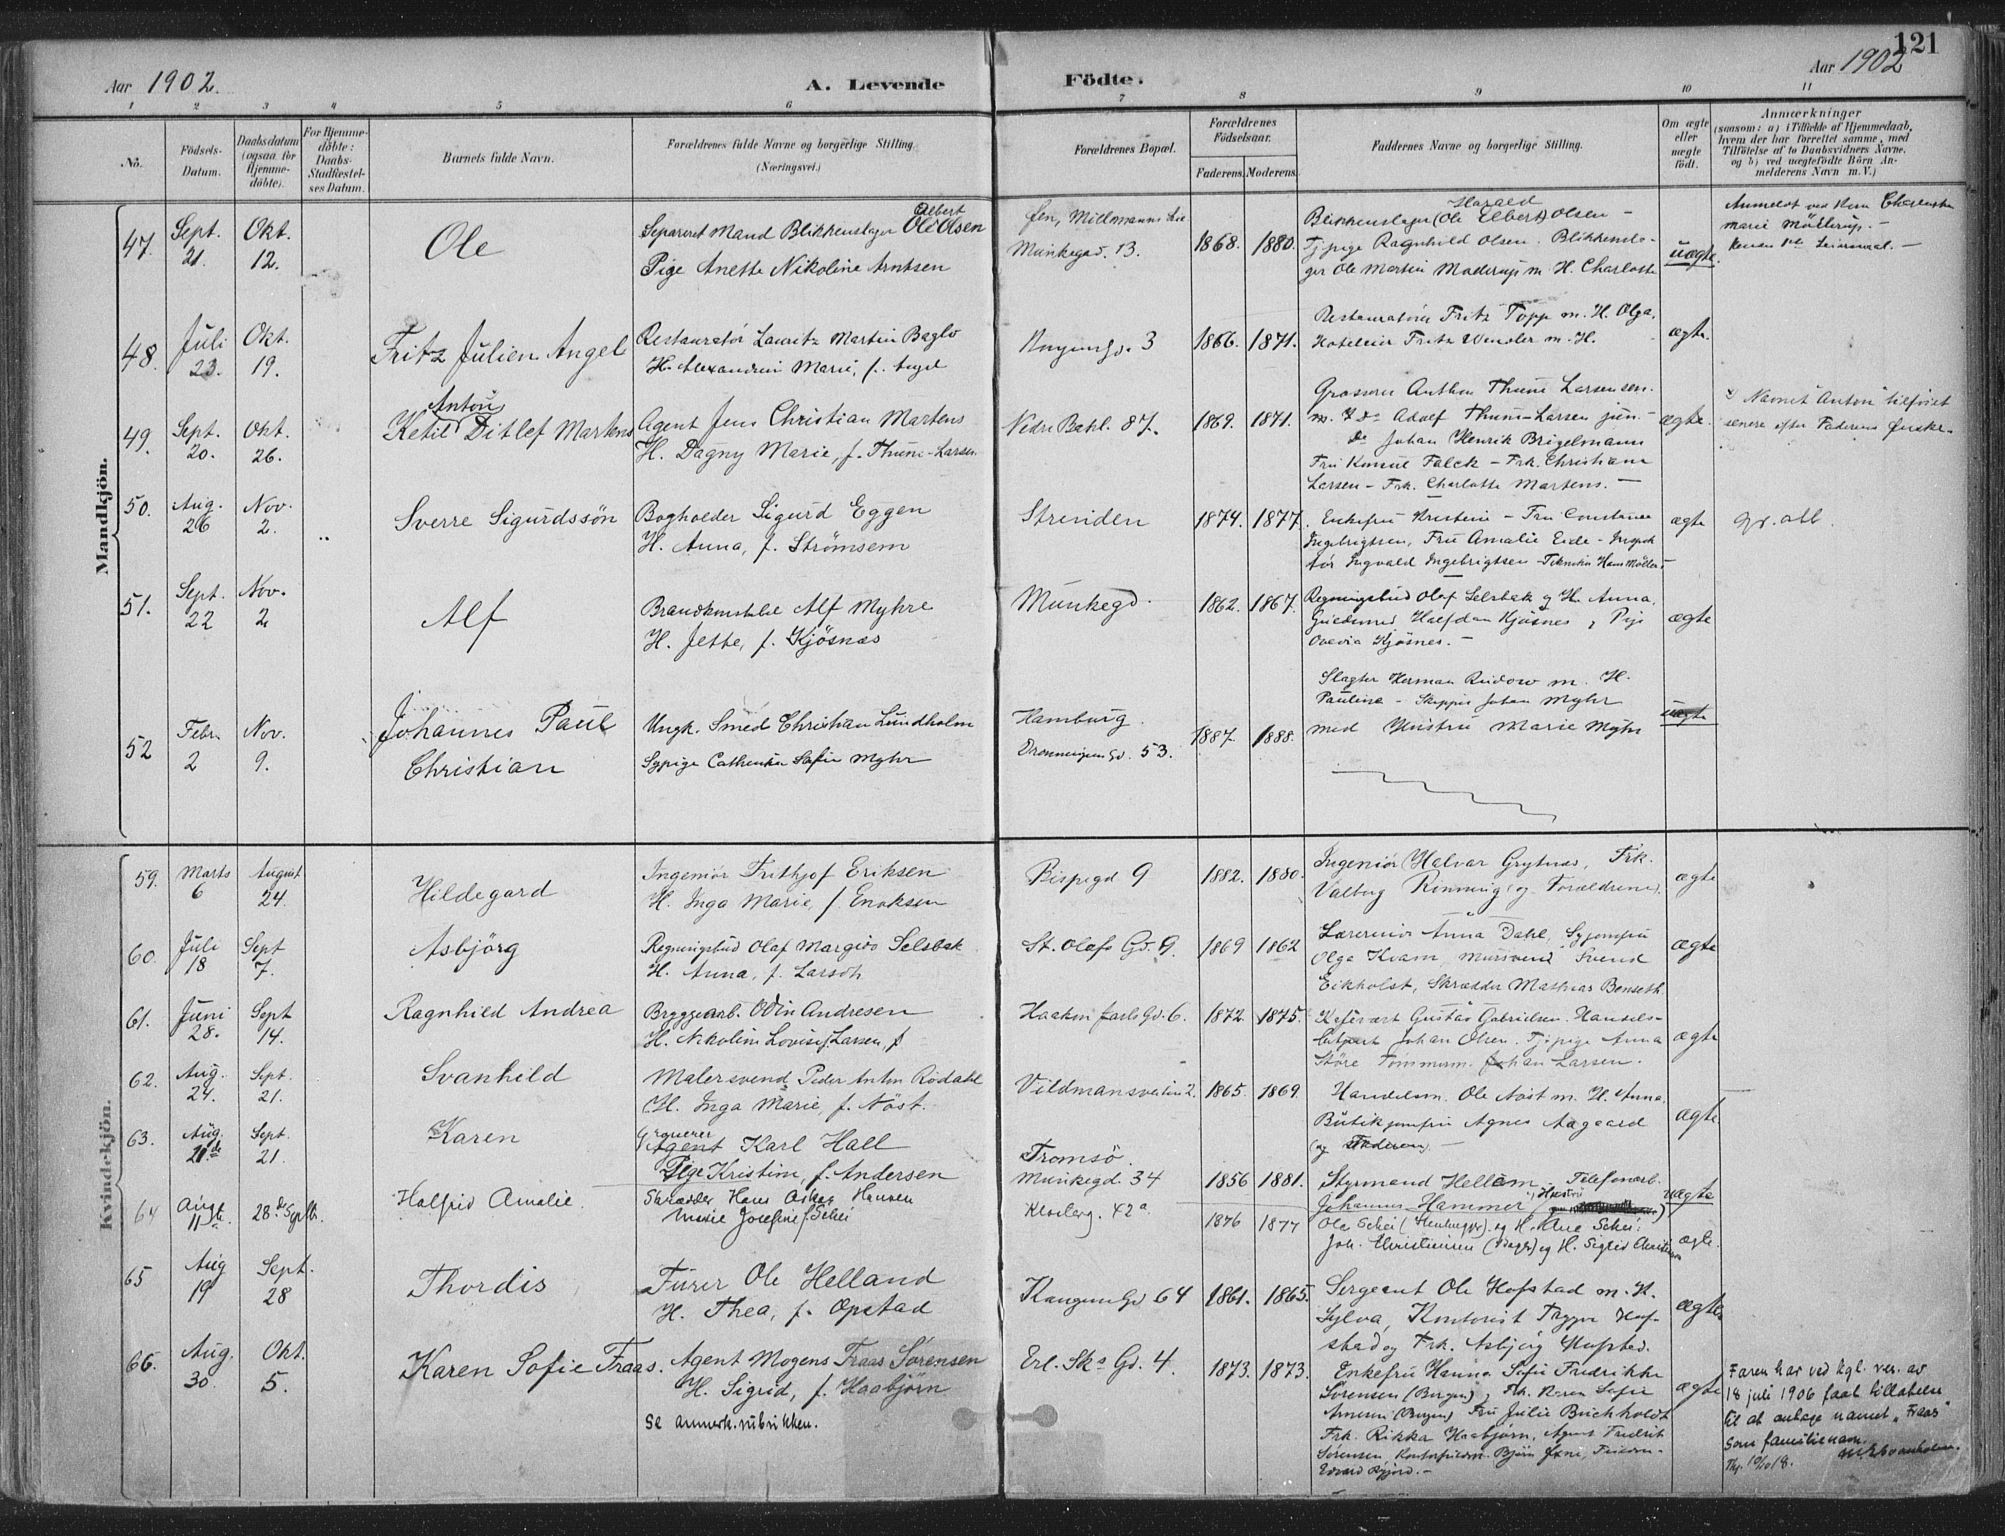 121
Aar 1902.
A. Levende
Födte.
Aar 1902
1 2 3 4 5 6 7 8 9 10 11
No.
Födsels-
Datum.
Daabsdatum
(ogsaa for
Hjemme-
døbte).
For Hjemme-
døbte:
Daabs-
Stadfæstel-
ses Datum.
Barnets fulde Navn.
Forældrenes fulde Navne og borgerlige Stilling.
(Næringsvei.)
Forældrenes Bopæl.
Forældrenes
Födselsaar.
Faderens. Moderens.
Faddernes Navne og borgerlige Stilling.
Om ægte
eller
uægte
födt.
Anmærkninger
(saasom: a) i Tilfælde af Hjemmedaab,
hvem der har forrettet samme, med
Tilföielse af to Daabsvidners Navne,
og b) ved uægtefödte Börn An-
melderens Navn m. V.)
Mandkjön.
47. Sept. 21. Okt. 12.
Ole
Albert
Separeret Mand Blikkenslager Ole Olsen
Pige Anette Nikoline Arntsen
Munkegd. 13.
1868. 1880.
Harald
Blikkenslager (Ole Elbert) Olsen -
Tjpige Ragnhild Olsen. Blikkensla-
ger Ole Martin Moderup m. H. Charlotte
uægte.
48. Juli 23. Okt. 19.
Fritz Julien Angel
Restauratør Lauritz Martin Baglo
H. Alexandrine Marie, f. Angel
1866. 1871.
Restauratør Fritz Topp m. H. Olga.
Hoteleier Fritz Wendler m. H.
ægte.
49. Sept. 20. Okt. 26.
Anton
Ketil Ditlef Martens
Agent Jens Christian Martens
H. Dagny Marie, f. Thune-Larsen
Nedre Bakl. 87.
1869. 1871.
Grosserer Anthon Thune Larsen sen.
m. H. do Adolf Thune-Larsen jun. -
do Johan Henrik Brigelmann
Fru Konsul Falck - Frk. Christiane
Larsen - Frk. Charlotte Martens. -
ægte.
Navnet Anton tilföiet
senere efter Faderens ønske.
50. Aug. 26 Nov. 2.
Sverre Sigurdssön
Bogholder Sigurd Eggen
H. Anna, f. Strømsem
Strinden
1874. 1877.
Enkefru Kristine - Fru Constance
Ingebrigtsen, Fru Amalie Eide - Inspek
tør Ingvald Ingebrigtsen - Tekniker Hans Möller -
ægte
gr. att.
51. Sept. 22 Nov. 2
Alf
Brandkonstabel Alf Myhre
H. Jette, f. Kjösnes
Munkegd.
1862. 1867.
Regningsbud Olaf Selsbak og H. Anna.
Halfdan Kjösnes, Pige
Ovedia Kjösnes. -
ægte
52 Febr. 2 Nov. 9.
Johannes Paul
Christian
Ungk. Smed Christian Lundholm
Sypige Cathrine Sofie Myhr
Hamburg.
Dronningens Gd. 53.
1887. 1888.
Slagter Herman Rudow m. H.
Pauline - Skipper Johan Myhr
med Hustru Marie Myhr
uægte
Kvindekjön.
59. Marts 6 August 24.
Hildegard
Ingeniør Frithjof Eriksen
H. Inga Marie, f. Enoksen
Bispegd 9
1882. 1880.
Ingeniør Halvar Grytnes, Frk.
Valborg Rönning (og Forældrene).
ægte
60. Juli 18 Sept 7.
Asbjörg
Regningsbud Olaf Margido Selsbak
H. Anna, f. Larsen
St. Olafs Gd. 9.
1869 1862
Lærerinde Anna Dahl, Syjomfru
Olga Kvam, Mursvend Svend
Eikholst, Skrædder Mathias Benseth
ægte
61. Juni 28. Sept 14.
Ragnhild Andrea
Bryggearb. Odin Andresen
H. Nikoline Lovise f. Larsen, f
Haakon Jarls Gd. 6.
1872. 1875.
Kjøgvært Gustav Gabrielsen. Handels-
betjent Johan Olsen. Tjpige Anna
Störe Tømmerm. Johan Larsen.
ægte
62. Aug. 24. Sept. 21.
Svanhild
Malersvend Peder Anton Rödahl
H. Inga Marie, f. Nöst.
Vildmansveiten 2.
1865. 1869.
Handelsm. Ole Nöst m. H. Anna.
Butikjomfru Agnes Aagaard
(og Faderen). -
ægte
63. Aug. 21de Sept. 21.
Karen
Graverer
Agent Karl Hall
Pige Kristine, f. Andersen
Tromsö.
Munkegd. 34
1856 1881.
Styrmand Hellem - Telefonarb.
Johannes Hammer
uægte
64 Aug. 11te 28de Septbr.
Halfrid Amalie.
Skrædder Hans Oskar Hansen
Marie Josefine f. Schei
Klosterg. 42a
1876 1877
Ole Schei og H. Ane Schei:
Joh. Christiansen (Bager) og H. Sigrid Christiansen
ægte.
65 Aug 19 Sept. 28
Thordis
Furer Ole Helland
H. Thea, f. Opstad
Kongens Gd 64
1861. 1865.
Sergeant Ole Hofstad m. H.
Sylva, Kontorist Trygve Hof-
stad og Frk. Asbjörg Hofstad.
ægte
66. Aug. 30 Okt. 5.
Karen Sofie Fraas.
Agent Mogens Fraas Sørensen
H. Sigrid, f. Haabjörn
Se anmerk. rubrikken.
Erl. Sks Gd. 4.
1873. 1873.
Enkefru Hanna Sofie Fredrikke
Sørensen (Bergen), Frk. Karen Sofie
Arnesen (Bergen) Fru Julie Buchholdt
Frk. Rikka Haabjörn, Agent Fredrik
Sörensen,
ægte
Faren har ved kgl. res. av
18 juli 1906 faat tillatelse
til at antage navnet „Fraas"
som familienavn.